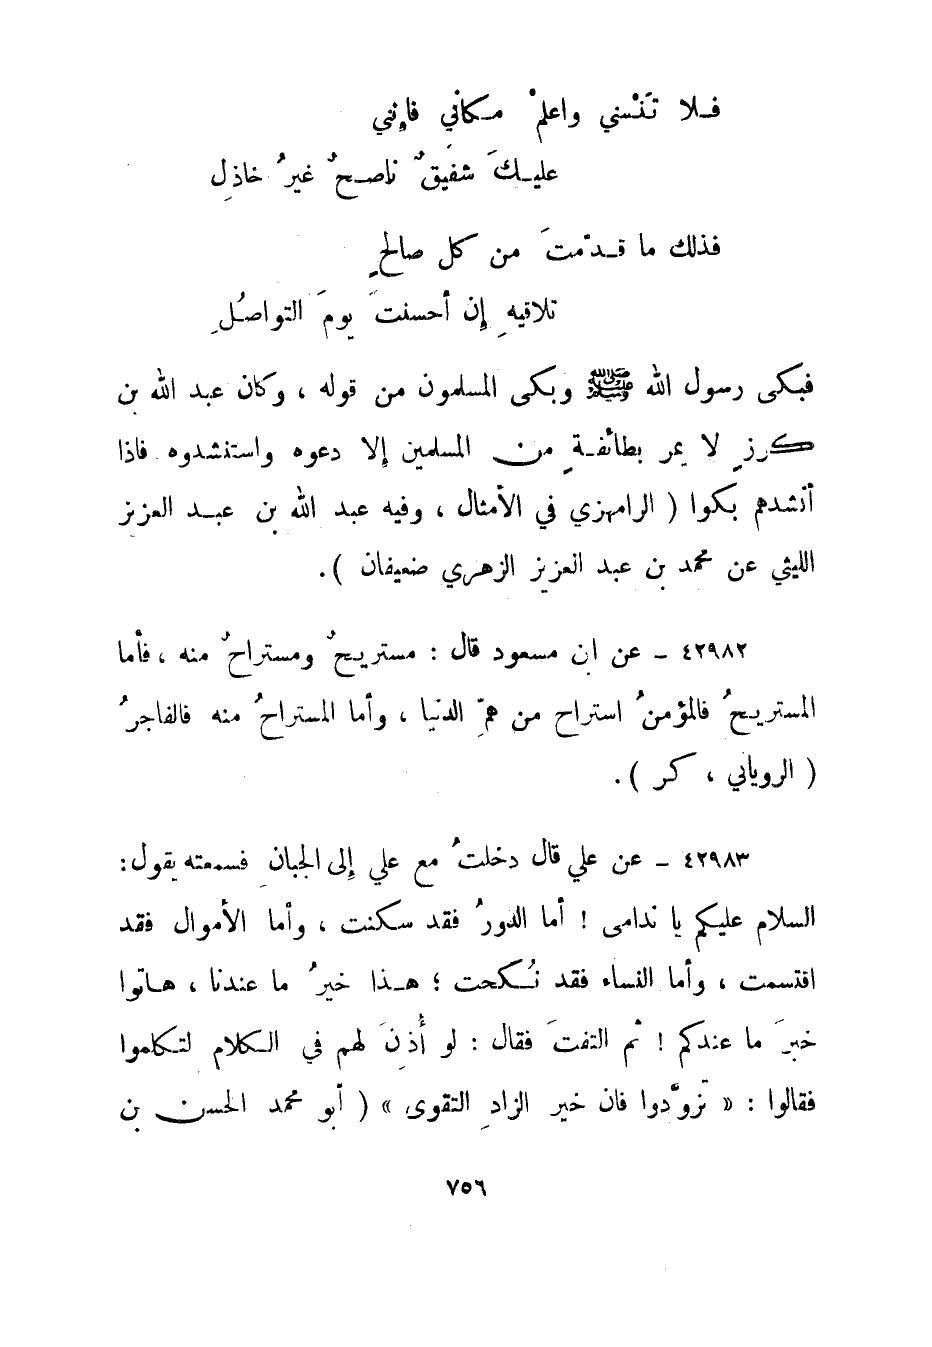 فـلا تَنْسني واعلمْ مـكاني فإنني
عليـكَ شفيقٌ ناصـحٌ غيرُ خاذلِ
فذلك ما قـدّمتَ من كل صالحٍ
تلاقيهِ إن أحسنتَ يومَ التواصُلِ
فبكى رسول الله ﷺ وبكى المسلمون من قوله ، وكان عبد الله بن
كرزٍ لا يمر بطائفـةٍ من المسلمين إلا دعوه واستنشدوه فاذا
أنشدهم بكوا ( الرامهزي في الأمثال ، وفيه عبد الله بن عبـد العزيز
الليثي عن محمد بن عبد العزيز الزهري ضعيفان ).
٤٢٩٨٢ ـ عن ابن مسعود قال : مستريحٌ ومستراحٌ منه ، فأما
المستريحُ فالمؤمنُ استراح من همِّ الدنيا ، وأما المستراحُ منه فالفاجرُ
( الروياني ، كر ).
٤٢٩٨٣ ـ عن علي قال دخلتُ مع علي إلى الجبانِ فسمعته يقول :
السلام عليكم يا ندامى ! أما الدورُ فقد سكنت ، وأما الأموال فقد
اقتسمت ، وأما النساء فقد نُـكحت ؛ هـذا خيرُ ما عندنا ، هـاتوا
خبرَ ما عندكم ! ثم التفتَ فقال : لو أُذنَ لهم في الـكلام لتـكلموا
فقالوا : « تزوَّدوا فان خير الزادِ التقوى » ( أبو محمد الحسن بن
٧٥٦